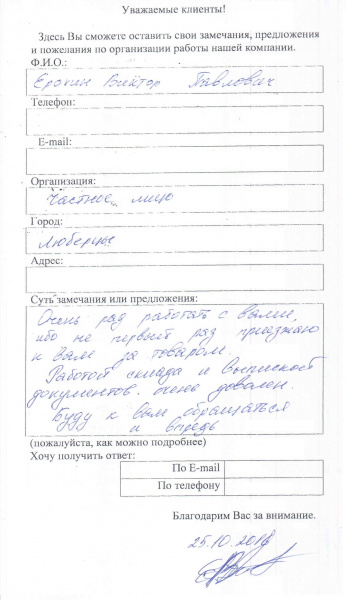 Уважаемые клиенты!
Здесь Вы сможете оставить свои замечания, предложения
и пожелания по организации работы нашей компании.
Ф.И.О.:
Еропин Виктор Павлович
Телефон:
E-mail:
Организация:
Частное лицо
Город:
Люберцы
Адрес:
Суть замечания или предложения:
Очень рад работать с вами,
ибо не первый раз приезжаю
к Вам за товаром
Работой склада и выпиской
документов очень доволен.
Буду к вам обращаться
и впредь
(пожалуйста, как можно подробнее)
Хочу получить ответ:
По E-mail
По телефону
Благодарим Вас за внимание.
25.10.2016